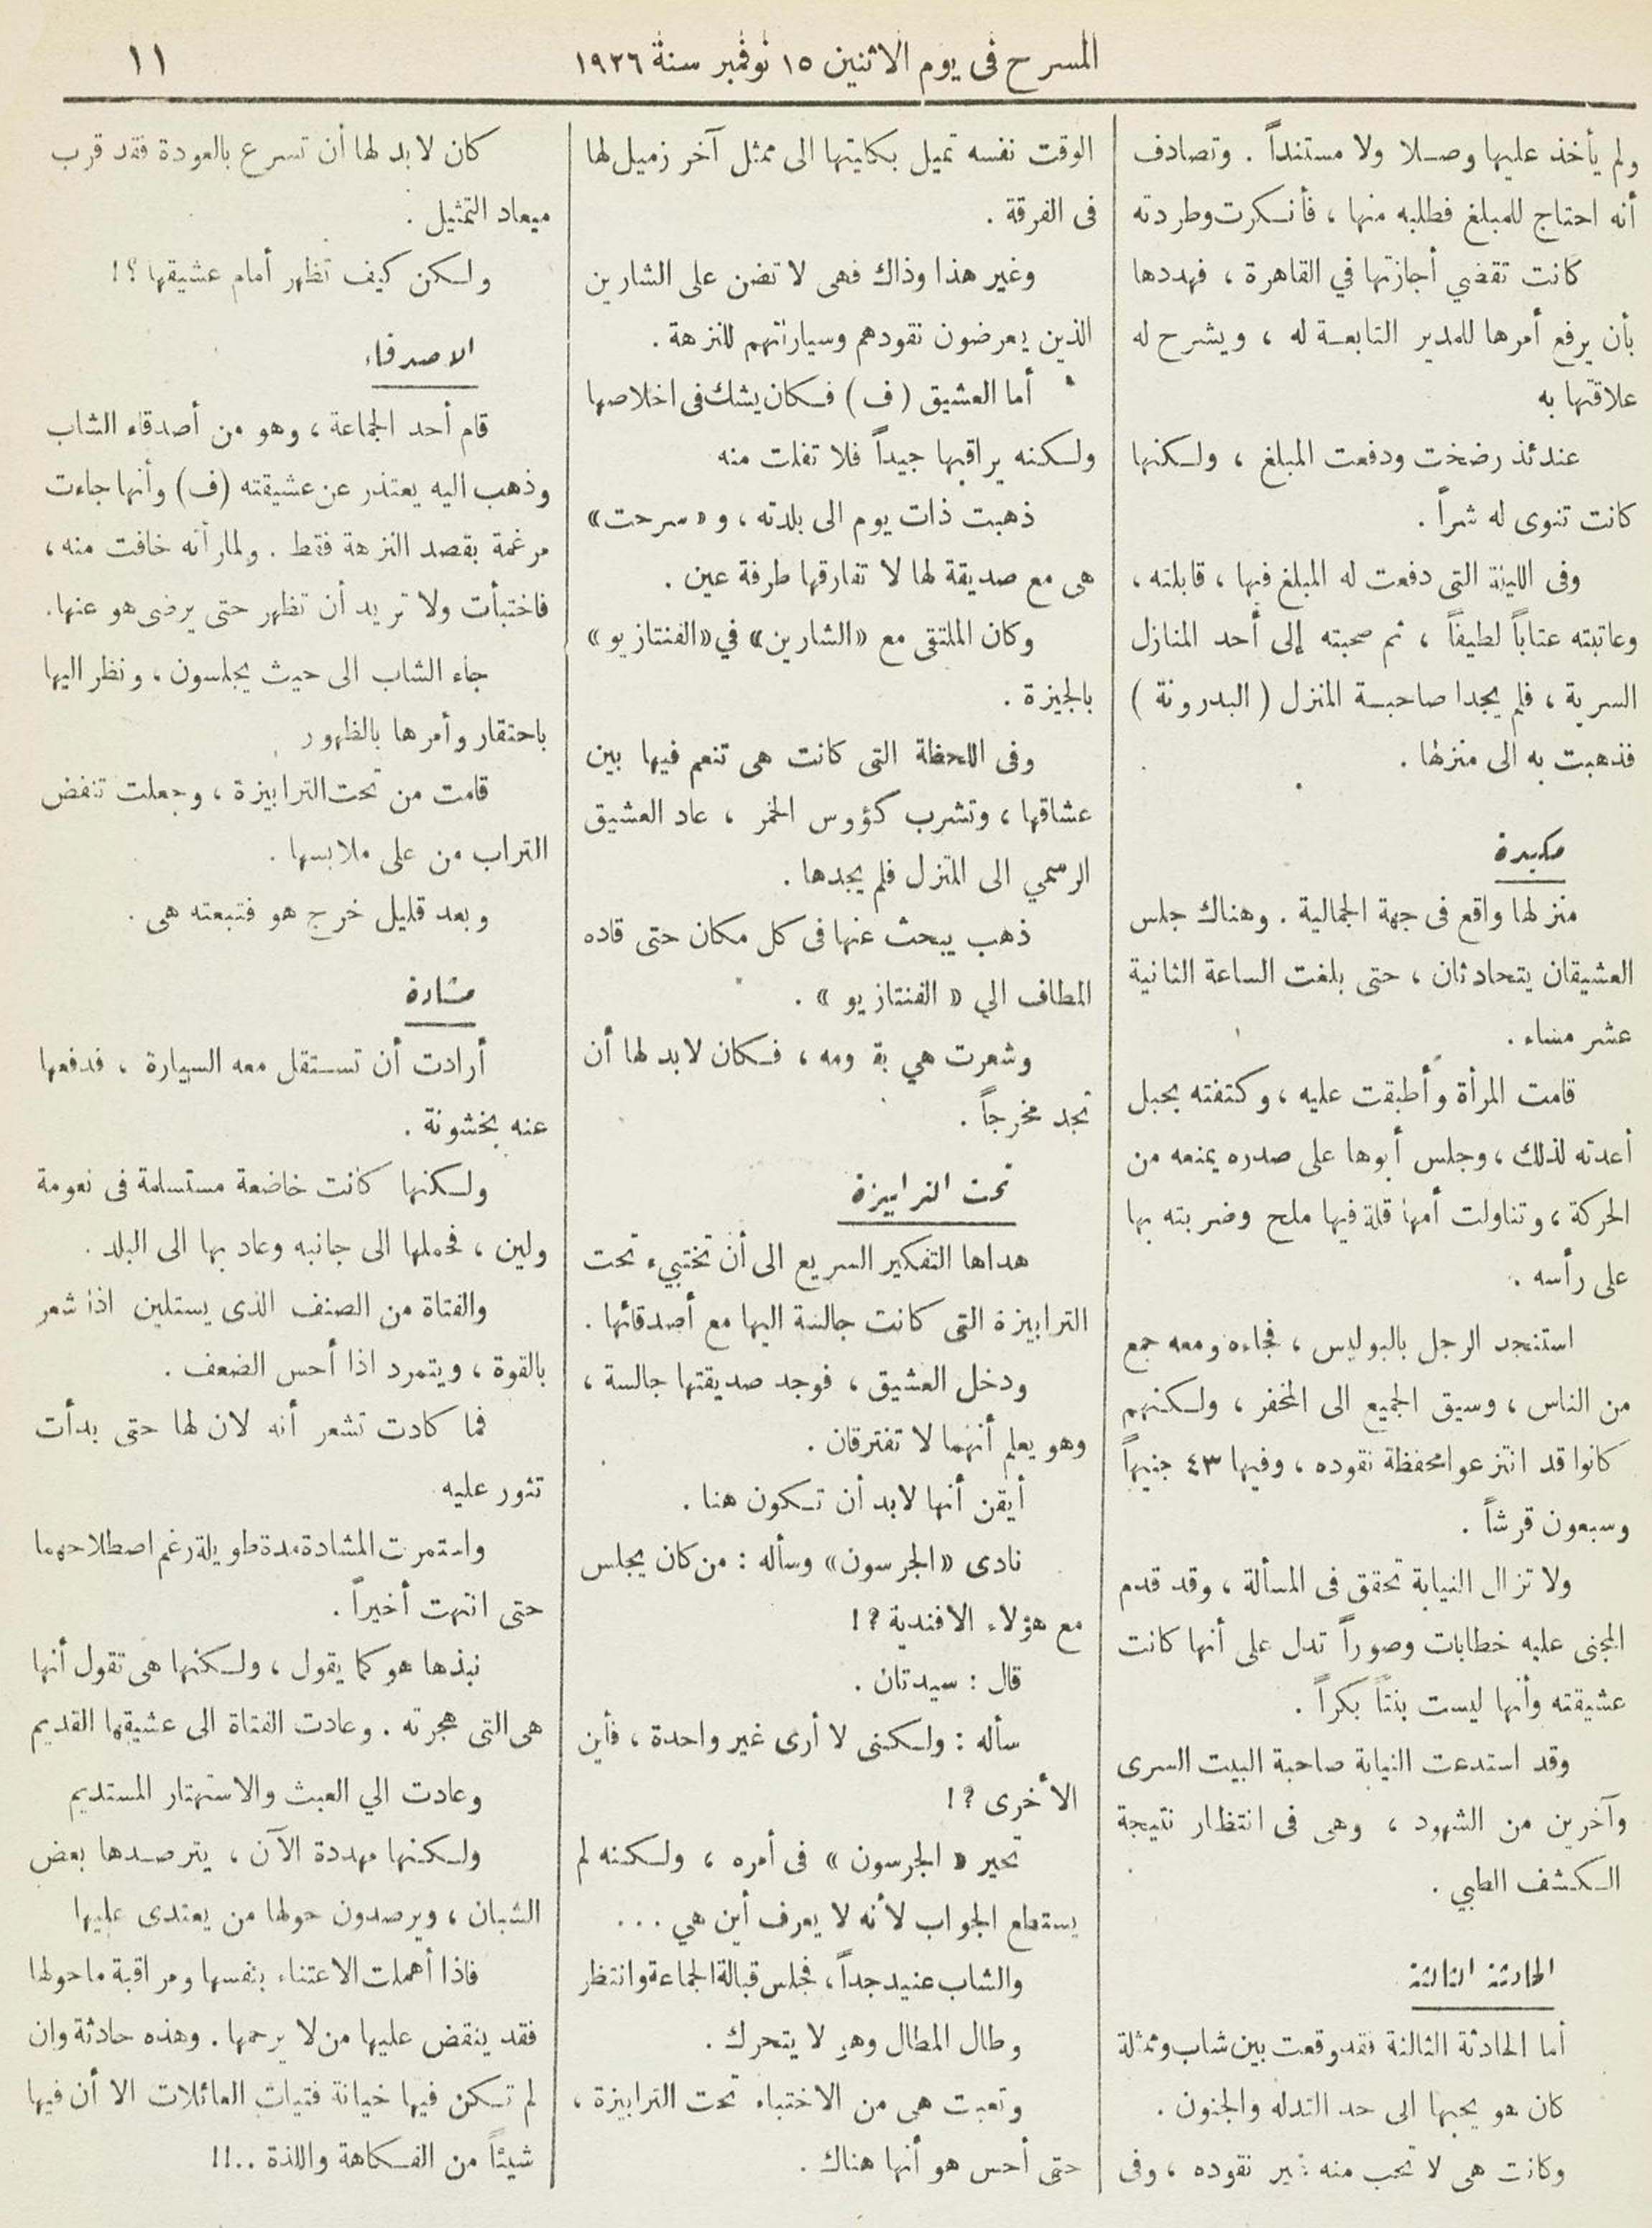 المسرح فى يوم الاثنين ١٥ نوفمبر سنة ١٩٢٦
١١
ولم يأخذ عليها وصلا ولا مستنداً . وتصادف
أنه احتاج للمبلغ فطلبه منها ، فأنكرت وطردته
كانت تقضي أجازتها في القاهرة ، فهددها
بأن يرفع أمرها للمدير التابعة له ، ويشرح له
علاقتها به
عندئذ رضخت ودفعت المبلغ ، ولكنها
كانت تنوى له شراً .
وفى الليلة التى دفعت له المبلغ فيها ، قابلته ،
وعاتبته عتاباً لطيفاً ، ثم صحبته إلى أحد المنازل
السرية ، فلم يجدا صاحبة المنزل ( البدرونة )
فذهبت به الى منزلها .
مكيدة
منزلها واقع فى جهة الجمالية . وهناك جلس
العشيقان يتحادثان ، حتى بلغت الساعة الثانية
عشر مساء .
قامت المرأة وأطبقت عليه ، وكتفته بحبل
أعدته لذلك ، وجلس أبوها على صدره يمنعه من
الحركة ، وتناولت أمها قلة فيها ملح وضربته بها
على رأسه .
استنجد الرجل بالبوليس ، فجاءه ومعه جمع
من الناس ، وسيق الجميع الى المخفر ، ولكنهم
كانوا قد انتزعوا محفظة نقوده ، وفيها ٤٣ جنيهاً
وسبعون قرشاً .
ولا تزال النيابة تحقق فى المسألة ، وقد قدم
المجنى عليه خطابات وصوراً تدل على أنها كانت
عشيقته وأنها ليست بنتاً بكراً .
وقد استدعت النيابة صاحبة البيت السرى
وآخرين من الشهود ، وهى فى انتظار نتيجة
الكشف الطبي .
الحادثة الثالثة
أما الحادثة الثالثة فقد وقعت بين شاب وممثلة
كان هو يحبها الى حد التدله والجنون .
وكانت هى لا تحب منه غير نقوده ، وفى
الوقت نفسه تميل بكليتها الى ممثل آخر زميل لها
فى الفرقة .
وغير هذا وذاك فهى لا تضن على الشارين
الذين يعرضون نقودهم وسياراتهم للنزهة .
أما العشيق ( ف ) فكان يشك فى اخلاصها
ولكنه يراقبها جيداً فلا تفلت منه
ذهبت ذات يوم الى بلدته ، و « سرحت »
هى مع صديقة لها لا تفارقها طرفة عين .
وكان الملتقى مع « الشارين » في « الفنتازيو »
بالجيزة .
وفى اللحظة التى كانت هى تنعم فيها بين
عشاقها ، وتشرب كؤوس الخمر ، عاد العشيق
الرسمي الى المنزل فلم يجدها .
ذهب يبحث عنها فى كل مكان حتى قاده
المطاف الي « الفنتازيو » .
وشعرت هي بقدومه ، فكان لابد لها أن
تجد مخرجاً .
تحت الترابيزة
هداها التفكير السريع الى أن تختبيء تحت
الترابيزة التى كانت جالسة اليها مع أصدقائها .
ودخل العشيق ، فوجد صديقتها جالسة ،
وهو يعلم أنهما لا تفترقان .
أيقن أنها لابد أن تكون هنا .
نادى « الجرسون » وسأله : من كان يجلس
مع هؤلاء الافندية ؟ !
قال : سيدتان .
سأله : ولكنى لا أرى غير واحدة ، فأين
الأخرى ؟ !
تحير « الجرسون » فى أمره ، ولكنه لم
يستطع الجواب لأنه لا يعرف أين هي ...
والشاب عنيد جداً ، فجلس قبالة الجماعة وانتظر
وطال المطال وهو لا يتحرك .
وتعبت هى من الاختباء تحت الترابيزة ،
حتى أحس هو أنها هناك .
كان لابد لها أن تسرع بالعودة فقد قرب
ميعاد التمثيل .
ولكن كيف تظهر أمام عشيقها ؟ !
الاصدقاء
قام أحد الجماعة ، وهو من أصدقاء الشاب
وذهب اليه يعتذر عن عشيقته (ف) وأنها جاءت
مرغمة بقصد النزهة فقط . ولما رأته خافت منه ،
فاختبأت ولا تريد أن تظهر حتى يرضى هو عنها .
جاء الشاب الى حيث يجلسون ، ونظر اليها
باحتقار وأمرها بالظهور
قامت من تحت الترابيزة ، وجعلت تنفض
التراب من على ملابسها .
وبعد قليل خرج هو فتبعته هى .
مشادة
أرادت أن تستقل معه السيارة ، فدفعها
عنه بخشونة .
ولكنها كانت خاضعة مستسلمة فى نعومة
ولين ، فحملها الى جانبه وعاد بها الى البلد .
والفتاة من الصنف الذى يستلين اذا شعر
بالقوة ، ويتمرد اذا أحس الضعف .
فما كادت تشعر أنه لان لها حتى بدأت
تثور عليه
واستمرت المشادة مدة طويلة رغم اصطلاحهما
حتى انتهت أخيراً .
نبذها هو كما يقول ، ولكنها هى تقول أنها
هى التى هجرته . وعادت الفتاة الى عشيقها القديم
وعادت الي العبث والاستهتار المستديم
ولكنها مهددة الآن ، يترصدها بعض
الشبان ، ويرصدون حولها من يعتدى عليها
فاذا أهملت الاعتناء بنفسها ومراقبة ما حولها
فقد ينقض عليها من لا يرحمها . وهذه حادثة وان
لم تكن فيها خيانة فتيات العائلات الا أن فيها
شيئاً من الفكاهة واللذة ..!!